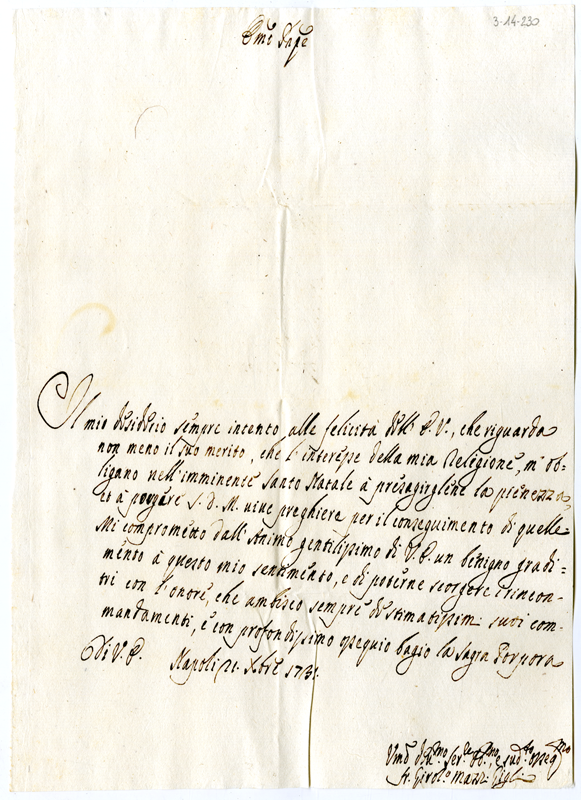 3-14-230
Eme Sigre
Il mio desiderio sempre intento alle felicità dell' E. V., che riguarda
non meno il suo merito, che l'interesse della mia Religione, m' ob-
ligano nell' imminente Santo Natale à presagirglene la pienezza,
et à porgere S. D. M. vive preghiere per il conseguimento di quelle
Mi comprometto dall' Animo gentilissimo di V. E. un benigno gradi-
mento à questo mio sentimento, e di poterne scorgere i rincon-
tri con l'onore, che ambisco sempre de stimatissimi suoi com-
mandamenti, e con profondissimo ossequio bagio la Sagra Porpora
Di V. E. Napoli 21. Xbre 1731.
Umo Devmo Serre